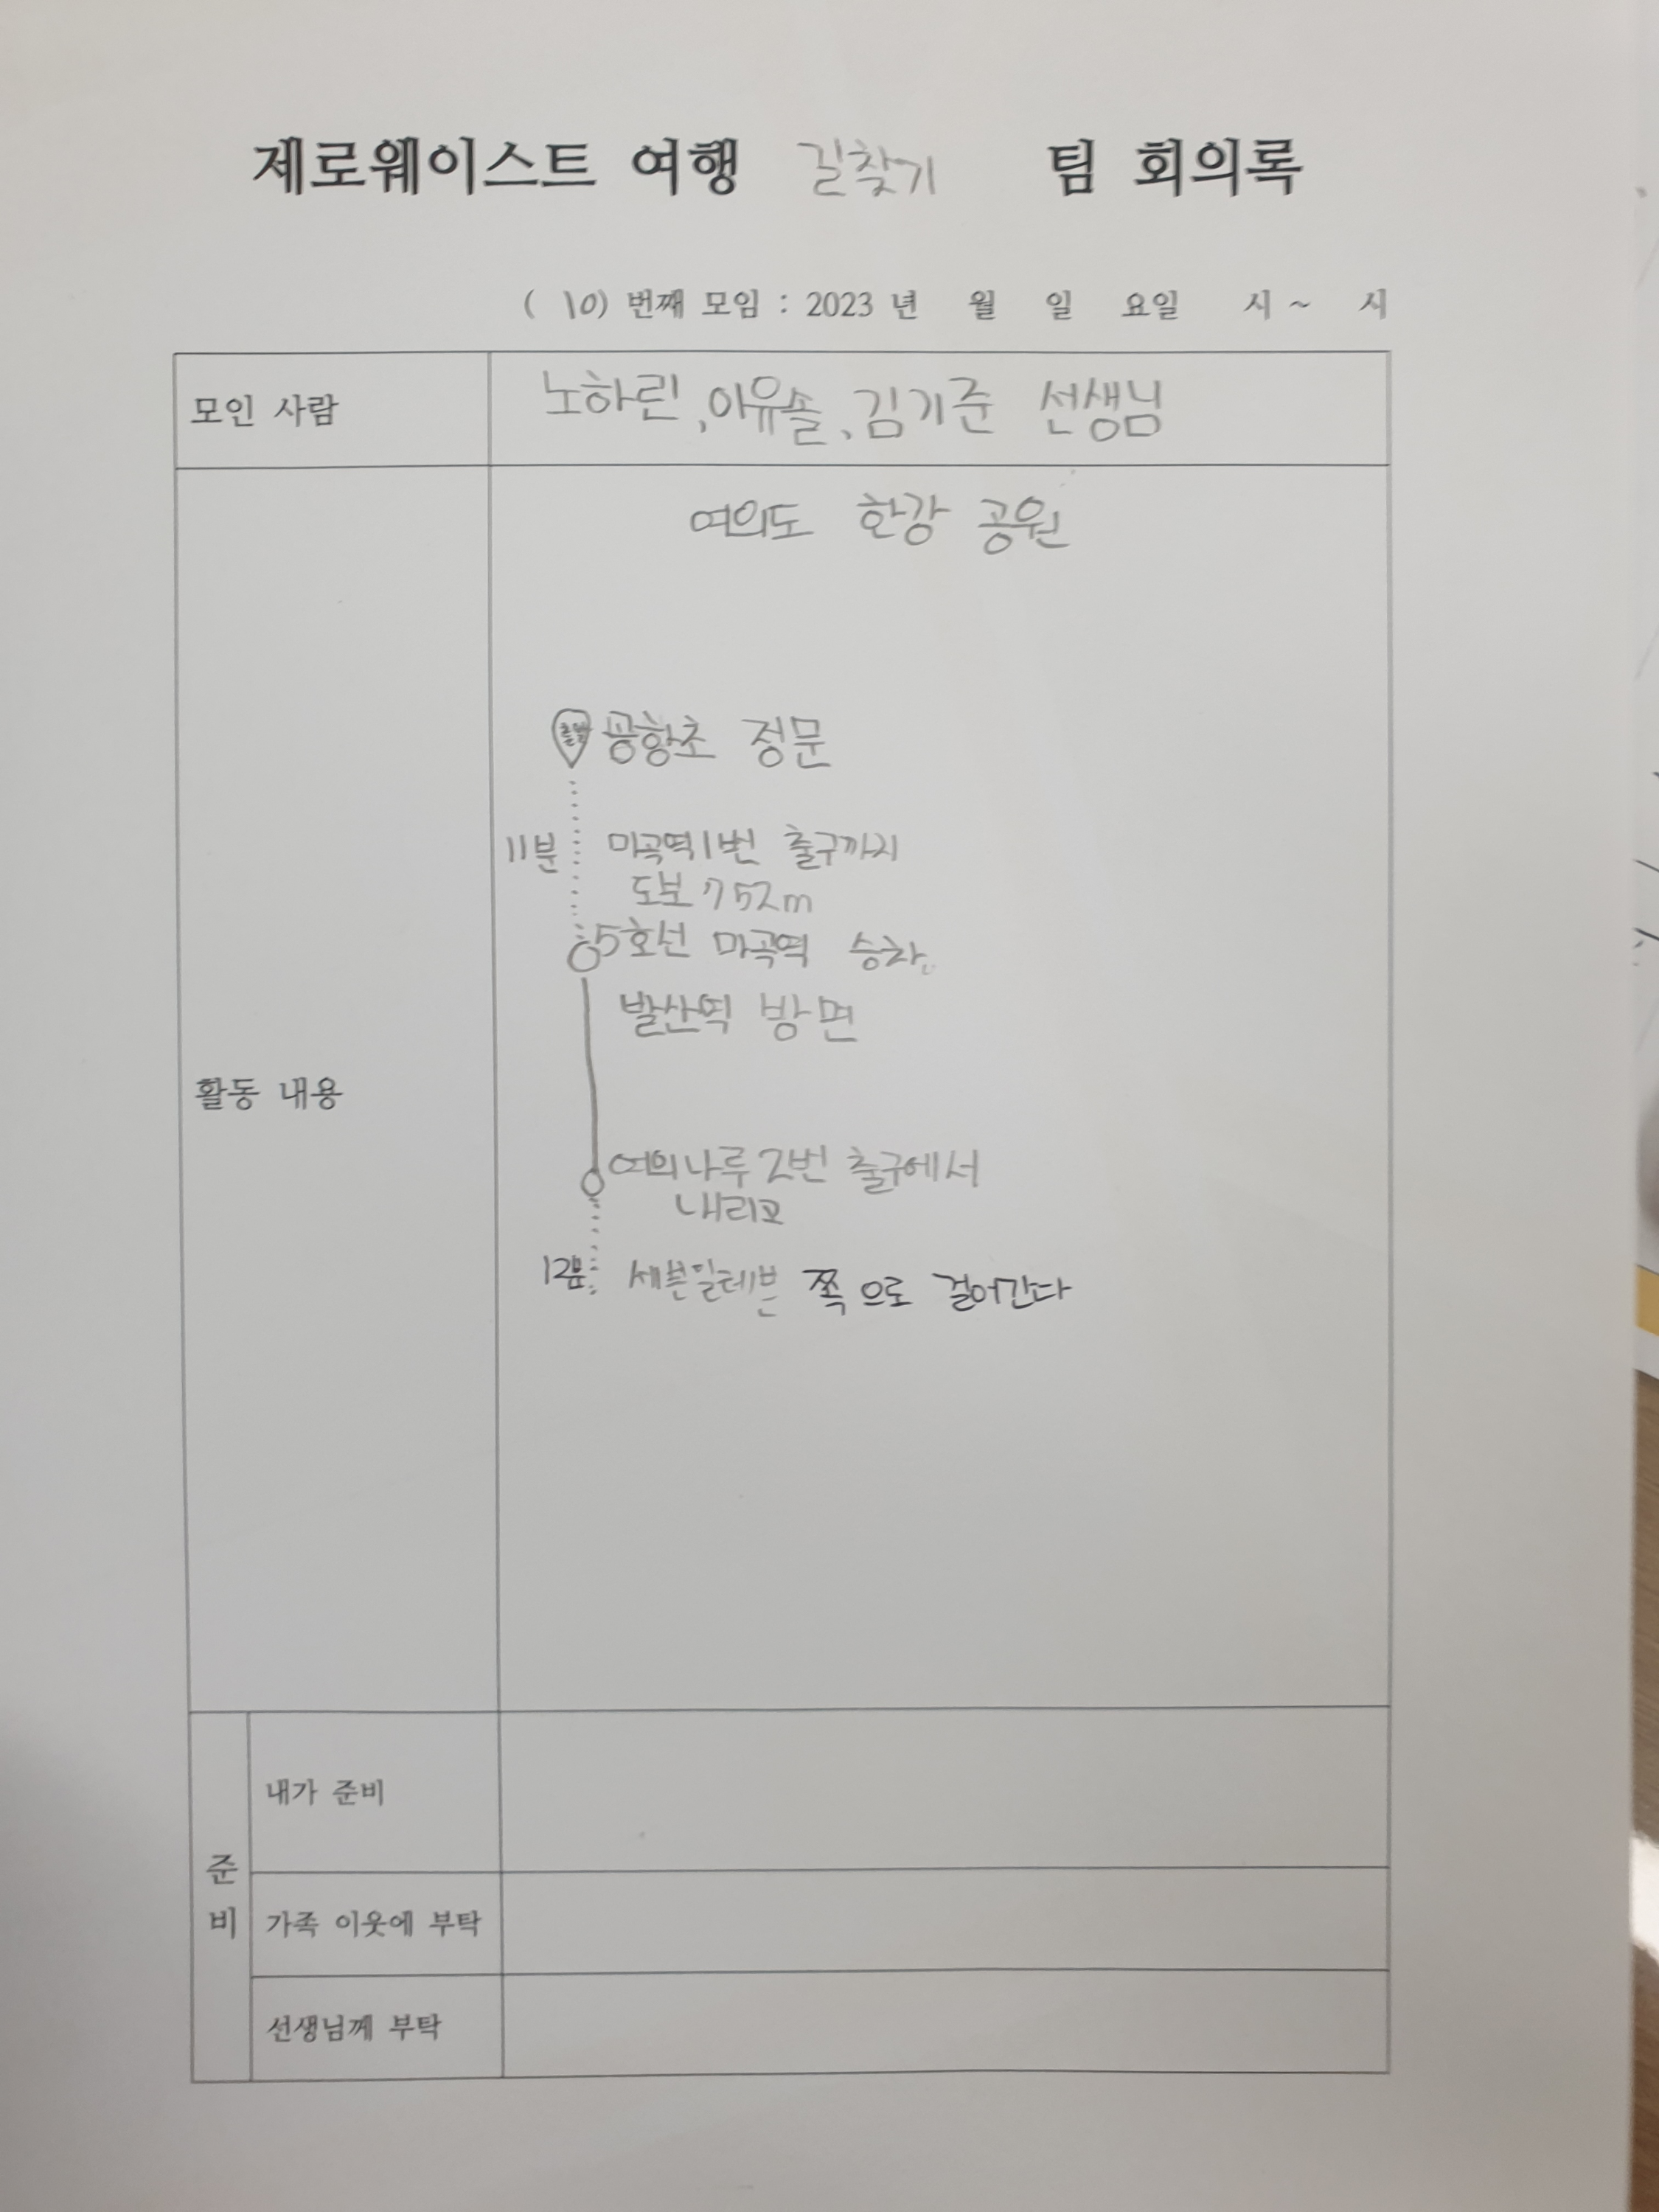 제로웨이스트 여행 길찾기 팀 회의록
( 10) 번째 모임 : 2023 년 월 일 요일 시 ~ 시
모인 사람
노하린, 이유솔, 김기준 선생님
활동 내용
여의도 한강 공원
출발 공항초 정문
11분 마곡역1번 출구까지
도보 752m
5호선 마곡역 승차.
발산역 방면
여의나루 2번 출구에서
내리고
12분 세븐일레븐 쪽으로 걸어간다
준비
내가 준비
가족 이웃에 부탁
선생님께 부탁